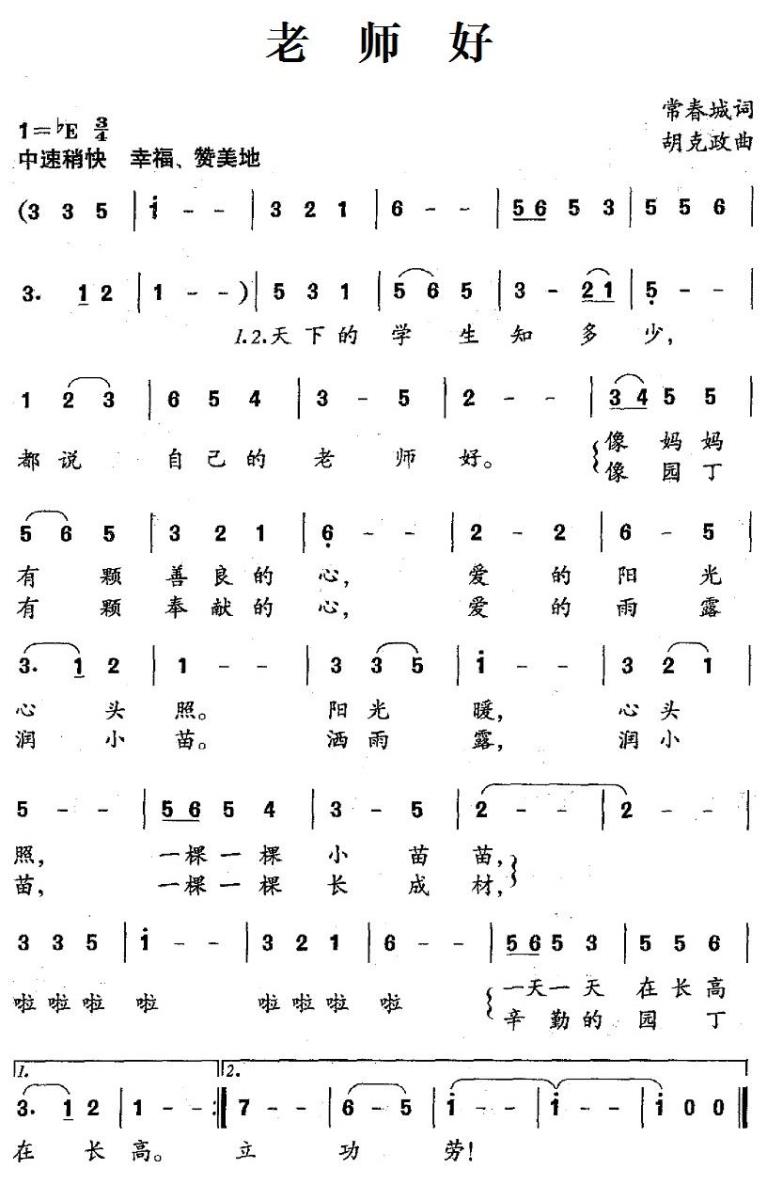 老师好
常春城词
1=♭E 3/4
胡克政曲
中速稍快 幸福、赞美地
(3 3 5 | i - - | 3 2 1 | 6 - - | 5 6 5 3 | 5 5 6 |
3. 1 2 | 1 - - ) | 5 3 1 | 5 6 5 | 3 - 2 1 | 5 - - |
1.2.天下的 学 生 知 多 少,
1 2 3 | 6 5 4 | 3 - 5 | 2 - - | 3 4 5 5 |
都说 自己的 老 师 好。 像 妈 妈
像 园 丁
5 6 5 | 3 2 1 | 6 - - | 2 - 2 | 6 - 5 |
有 颗 善良的 心, 爱 的 阳 光
有 颗 奉献的 心, 爱 的 雨 露
3. 1 2 | 1 - - | 3 3 5 | i - - | 3 2 1 |
心 头 照。 阳 光 暖, 心 头
润 小 苗。 洒 雨 露, 润 小
5 - - | 5 6 5 4 | 3 - 5 | 2 - - | 2 - - |
照, 一棵一棵 小 苗 苗,
苗, 一棵一棵 长 成 材,
3 3 5 | i - - | 3 2 1 | 6 - - | 5 6 5 3 | 5 5 6 |
啦啦啦 啦 啦啦啦 啦 一天一天 在长高
辛 勤的 园 丁
1. 2.
3. 1 2 | 1 - - :| 7 - - | 6 - 5 | i - - | i - - | i 0 0 ||
在 长 高。 立 功 劳!